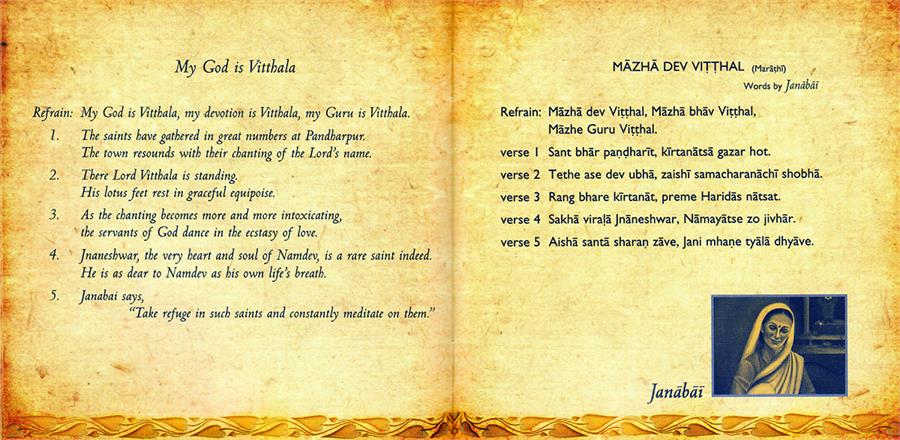 My God is Vitthala
Refrain: My God is Vitthala, my devotion is Vitthala, my Guru is Vitthala.
1. The saints have gathered in great numbers at Pandharpur.
The town resounds with their chanting of the Lord's name.
2. There Lord Vitthala is standing.
His lotus feet rest in graceful equipoise.
3. As the chanting becomes more and more intoxicating,
the servants of God dance in the ecstasy of love.
4. Jnaneshwar, the very heart and soul of Namdev, is a rare saint indeed.
He is as dear to Namdev as his own life's breath.
5. Janabai says,
"Take refuge in such saints and constantly meditate on them."
MĀZHĀ DEV VIṬṬHAL (Marāṭhī)
Words by Janābāī
Refrain: Māzhā dev Viṭṭhal, Māzhā bhāv Viṭṭhal,
Māzhe Guru Viṭṭhal.
verse 1 Sant bhār paṇḍharīt, kīrtanātsā gazar hot.
verse 2 Tethe ase dev ubhā, zaishī samacharaṇāchī shobhā.
verse 3 Rang bhare kīrtanāt, preme Haridās nātsat.
verse 4 Sakhā viraḷā Jnāneshwar, Nāmayātse zo jivhār.
verse 5 Aishā santā sharaṇ zāve, Jani mhaṇe tyālā dhyāve.
Janābāī